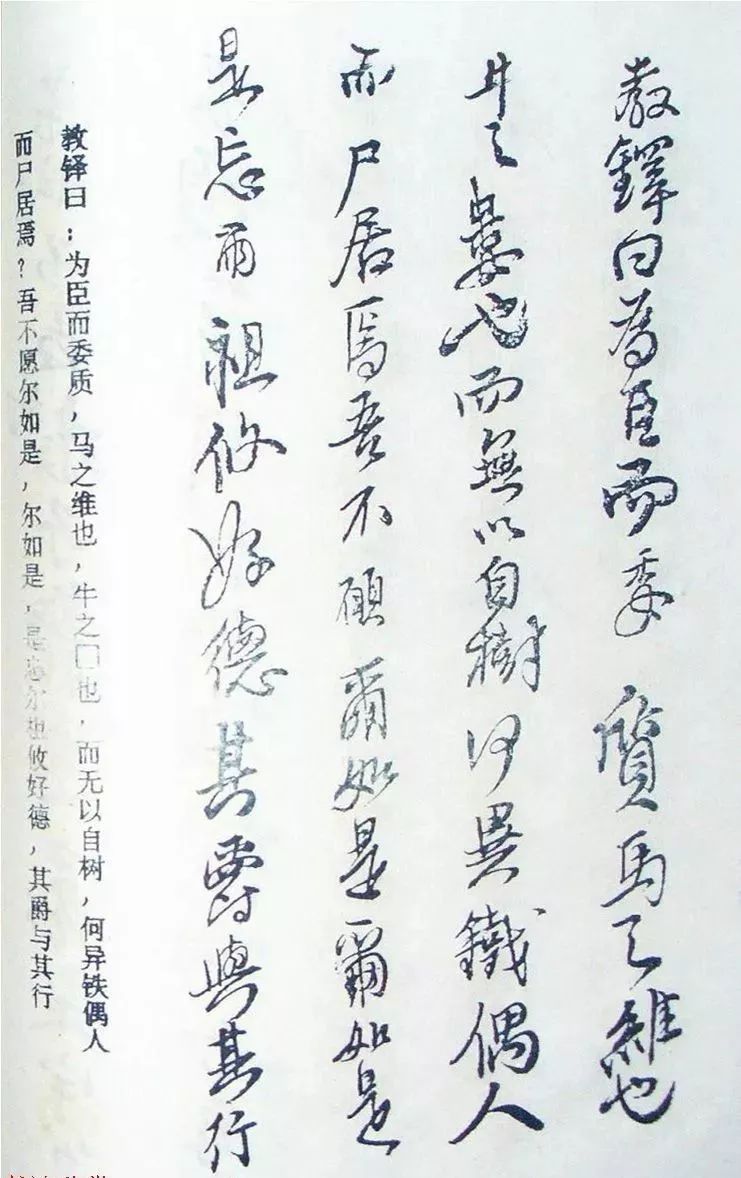 教鐸曰為臣而委質馬之維也
牛之也而無以自樹何異鐵偶人
而尸居焉吾不願爾如是爾如是
是忘爾祖攸好德其爵與其行
教铎曰：为臣而委质，马之维也，牛之□也，而无以自树，何异铁偶人
而尸居焉？吾不愿尔如是，尔如是，是忘尔祖攸好德，其爵与其行